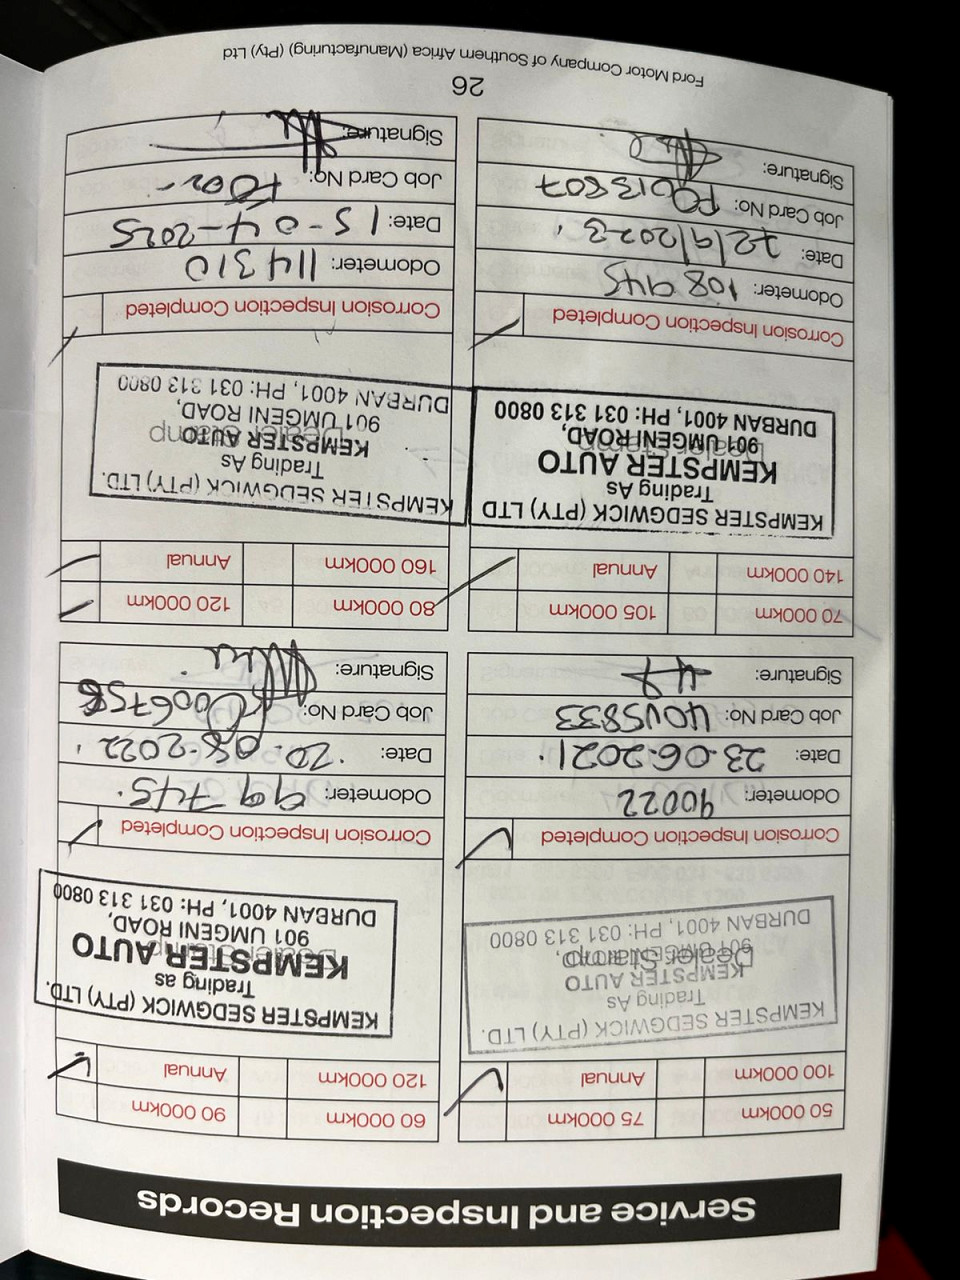 Service and Inspection Records
50 000km 75 000km
100 000km Annual
KEMPSTER SEDGWICK (PTY) LTD.
Trading As
KEMPSTER AUTO
Dealer Stamp
901 UMGENI ROAD,
DURBAN 4001, PH: 031 313 0800
Corrosion Inspection Completed
Odometer: 90022
Date: 23.06.2021.
Job Card No: 40V5833
Signature:
60 000km 90 000km
120 000km Annual
KEMPSTER SEDGWICK (PTY) LTD.
Trading as
KEMPSTER AUTO
Dealer Stamp
901 UMGENI ROAD,
DURBAN 4001, PH: 031 313 0800
Corrosion Inspection Completed
Odometer: 99745.
Date: 20.08-2022
Job Card No:
Signature:
70 000km 105 000km
140 000km Annual
KEMPSTER SEDGWICK (PTY) LTD
Trading As
KEMPSTER AUTO
Dealer Stamp
901 UMGENI ROAD,
DURBAN 4001, PH: 031 313 0800
Corrosion Inspection Completed
Odometer: 108945
Date: 22/9/2023
Job Card No: FO013807
Signature:
80 000km 120 000km
160 000km Annual
KEMPSTER SEDGWICK (PTY) LTD.
Trading As
KEMPSTER AUTO
Dealer Stamp
901 UMGENI ROAD,
DURBAN 4001, PH: 031 313 0800
Corrosion Inspection Completed
Odometer: 114310
Date: 15-04-2025
Job Card No:
Signature:
26
Ford Motor Company of Southern Africa (Manufacturing) (Pty) Ltd